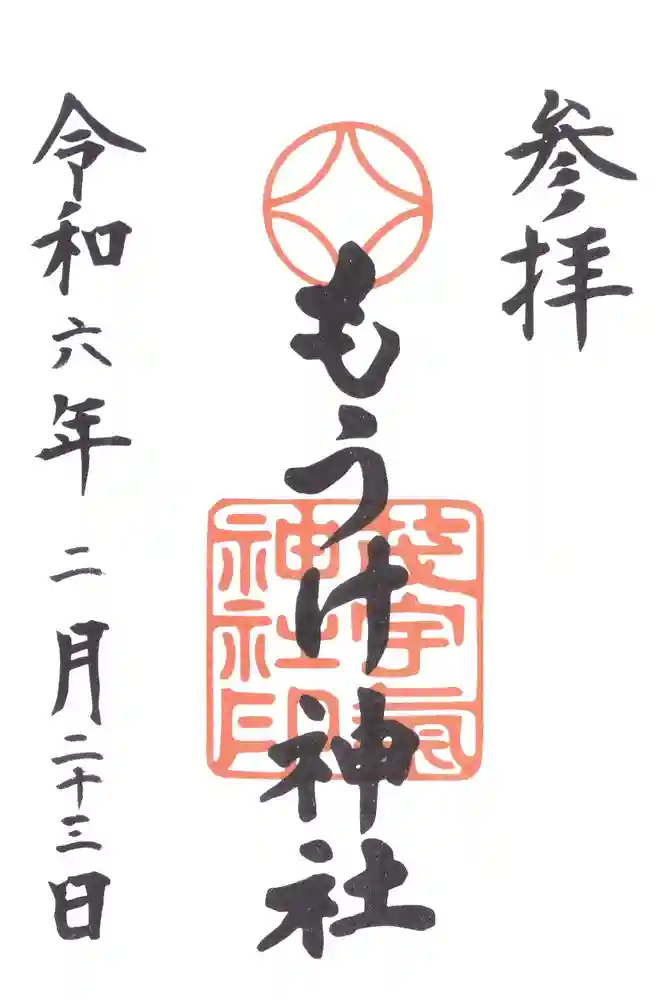 参拝
もうけ神社
茂宇氣神社印
令和六年 二月二十三日